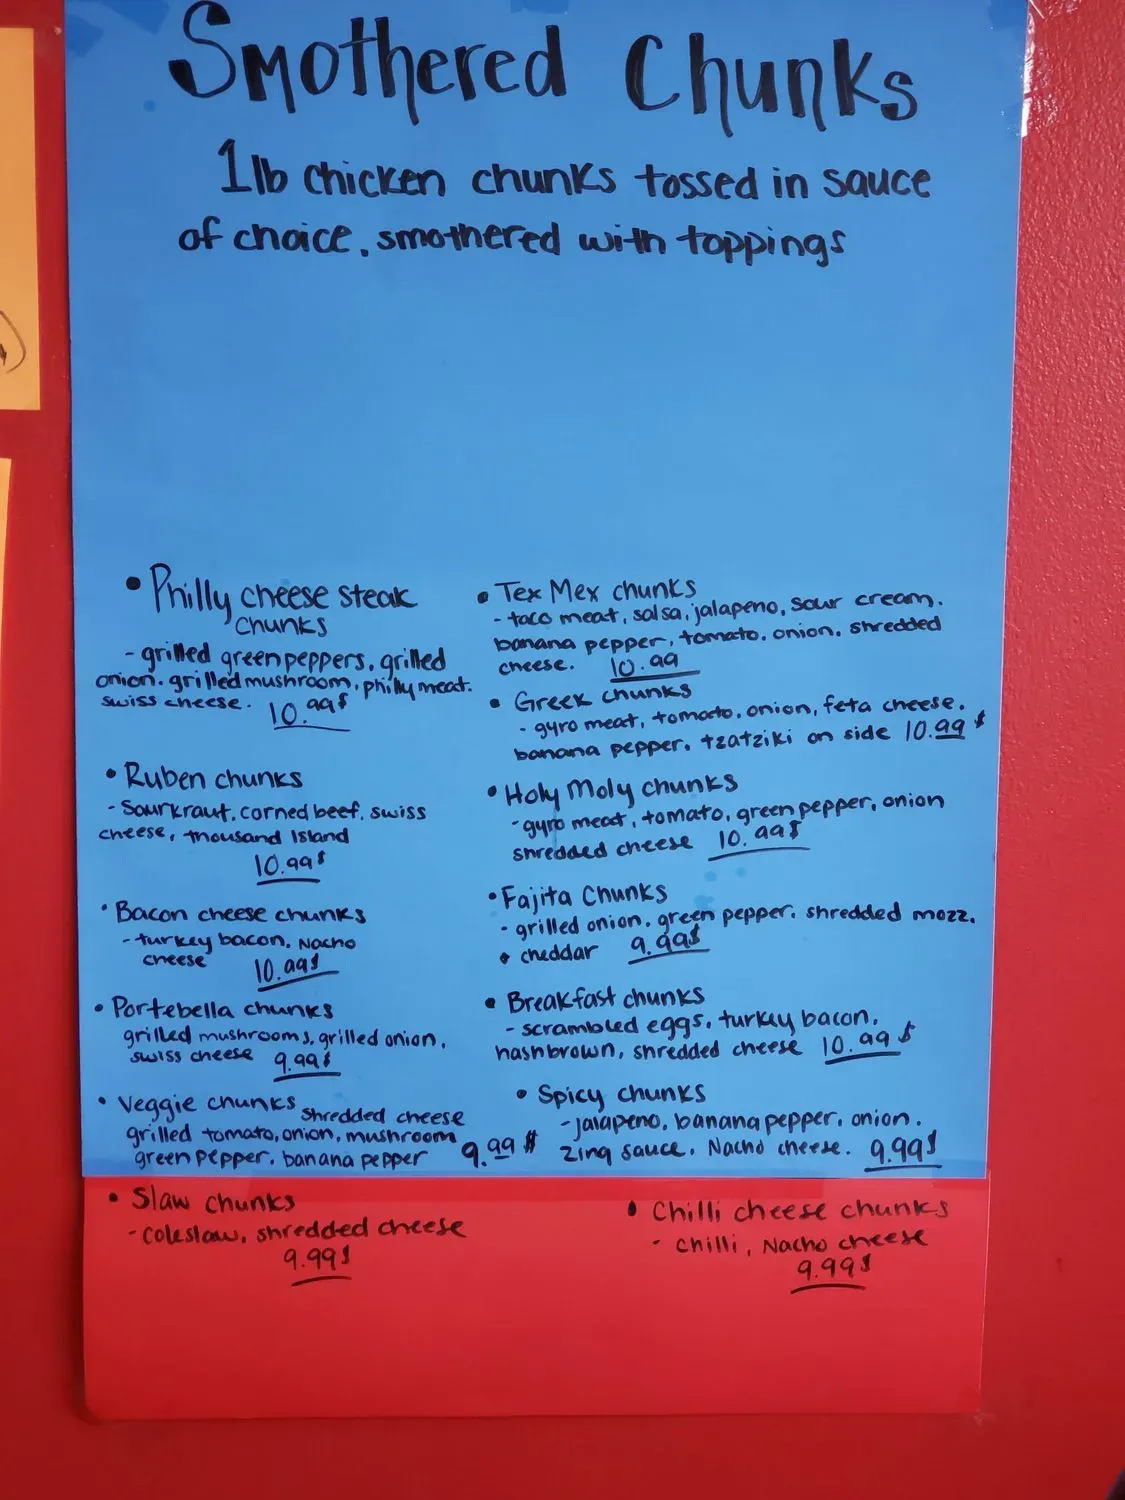 Smothered Chunks
1lb chicken chunks tossed in sauce
of choice, smothered with toppings
• Philly cheese steak
chunks
- grilled green peppers, grilled
onion, grilled mushroom, philly meat.
swiss cheese. 10.99$
• Ruben chunks
- Sourkraut, corned beef, swiss
cheese, thousand Island
10.99$
• Bacon cheese chunks
- turkey bacon, Nacho
cheese 10.99$
• Portebella chunks
grilled mushrooms, grilled onion,
swiss cheese 9.99$
• Veggie chunks shredded cheese
grilled tomato, onion, mushroom
green pepper, banana pepper 9.99$
• Slaw chunks
- coleslaw, shredded cheese
9.99$
• Tex Mex chunks
- taco meat, salsa, jalapeno, sour cream.
banana pepper, tomato, onion, shredded
cheese. 10.99
• Greek chunks
- gyro meat, tomato, onion, feta cheese.
banana pepper, tzatziki on side 10.99$
• Holy Moly chunks
- gyro meat, tomato, green pepper, onion
shredded cheese 10.99$
• Fajita Chunks
- grilled onion, green pepper, shredded mozz.
• cheddar 9.99$
• Breakfast chunks
- scrambled eggs, turkey bacon,
hashbrown, shredded cheese 10.99$
• Spicy chunks
- jalapeno, banana pepper, onion.
zinq sauce, Nacho cheese. 9.99$
• Chilli cheese chunks
- chilli, Nacho cheese
9.99$